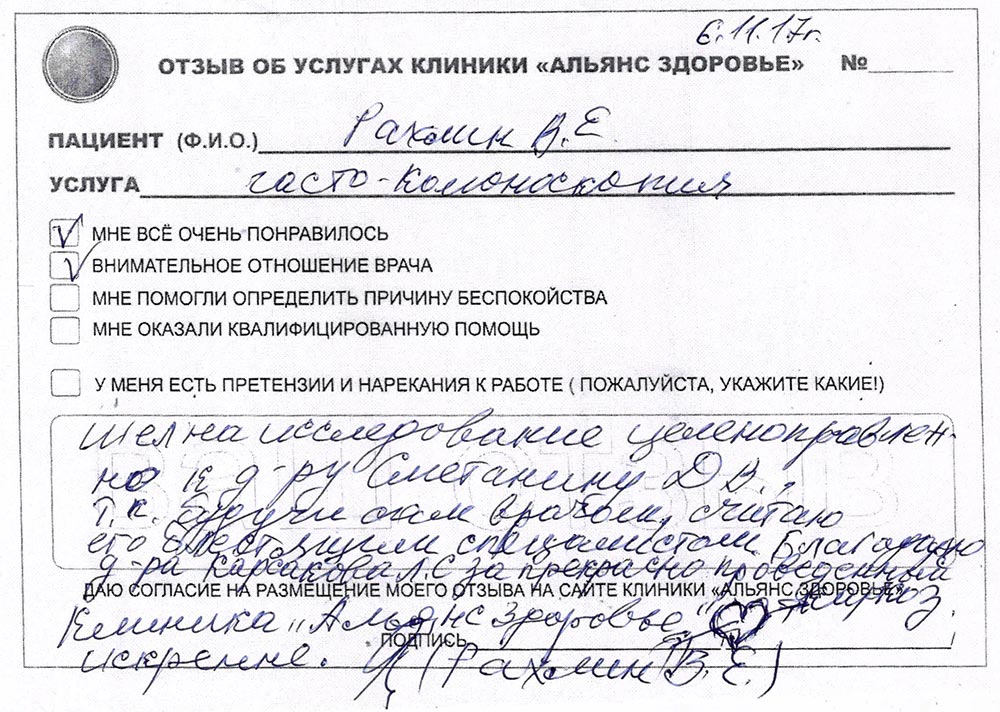 6.11.17г.
ОТЗЫВ ОБ УСЛУГАХ КЛИНИКИ «АЛЬЯНС ЗДОРОВЬЕ» №
ПАЦИЕНТ (Ф.И.О.) Рахмин В.Е.
УСЛУГА гастро-колоноскопия
МНЕ ВСЁ ОЧЕНЬ ПОНРАВИЛОСЬ
ВНИМАТЕЛЬНОЕ ОТНОШЕНИЕ ВРАЧА
МНЕ ПОМОГЛИ ОПРЕДЕЛИТЬ ПРИЧИНУ БЕСПОКОЙСТВА
МНЕ ОКАЗАЛИ КВАЛИФИЦИРОВАННУЮ ПОМОЩЬ
У МЕНЯ ЕСТЬ ПРЕТЕНЗИИ И НАРЕКАНИЯ К РАБОТЕ ( ПОЖАЛУЙСТА, УКАЖИТЕ КАКИЕ!)
ВАШ ОТЗЫВ
Шел на исследование целеноправлен-
но к д-ру Сметанину Д.В.,
т.к. будучи сам врачом, считаю
его блестящим специалистом Благодарю
д-ра Карсакова Л.С за прекрасно проведенный
ДАЮ СОГЛАСИЕ НА РАЗМЕЩЕНИЕ МОЕГО ОТЗЫВА НА САЙТЕ КЛИНИКИ «АЛЬЯНС ЗДОРОВЬЕ»
наркоз.
Клиника „Альянс здоровье"
ПОДПИСЬ
искренне. (Рахмин В.Е.)